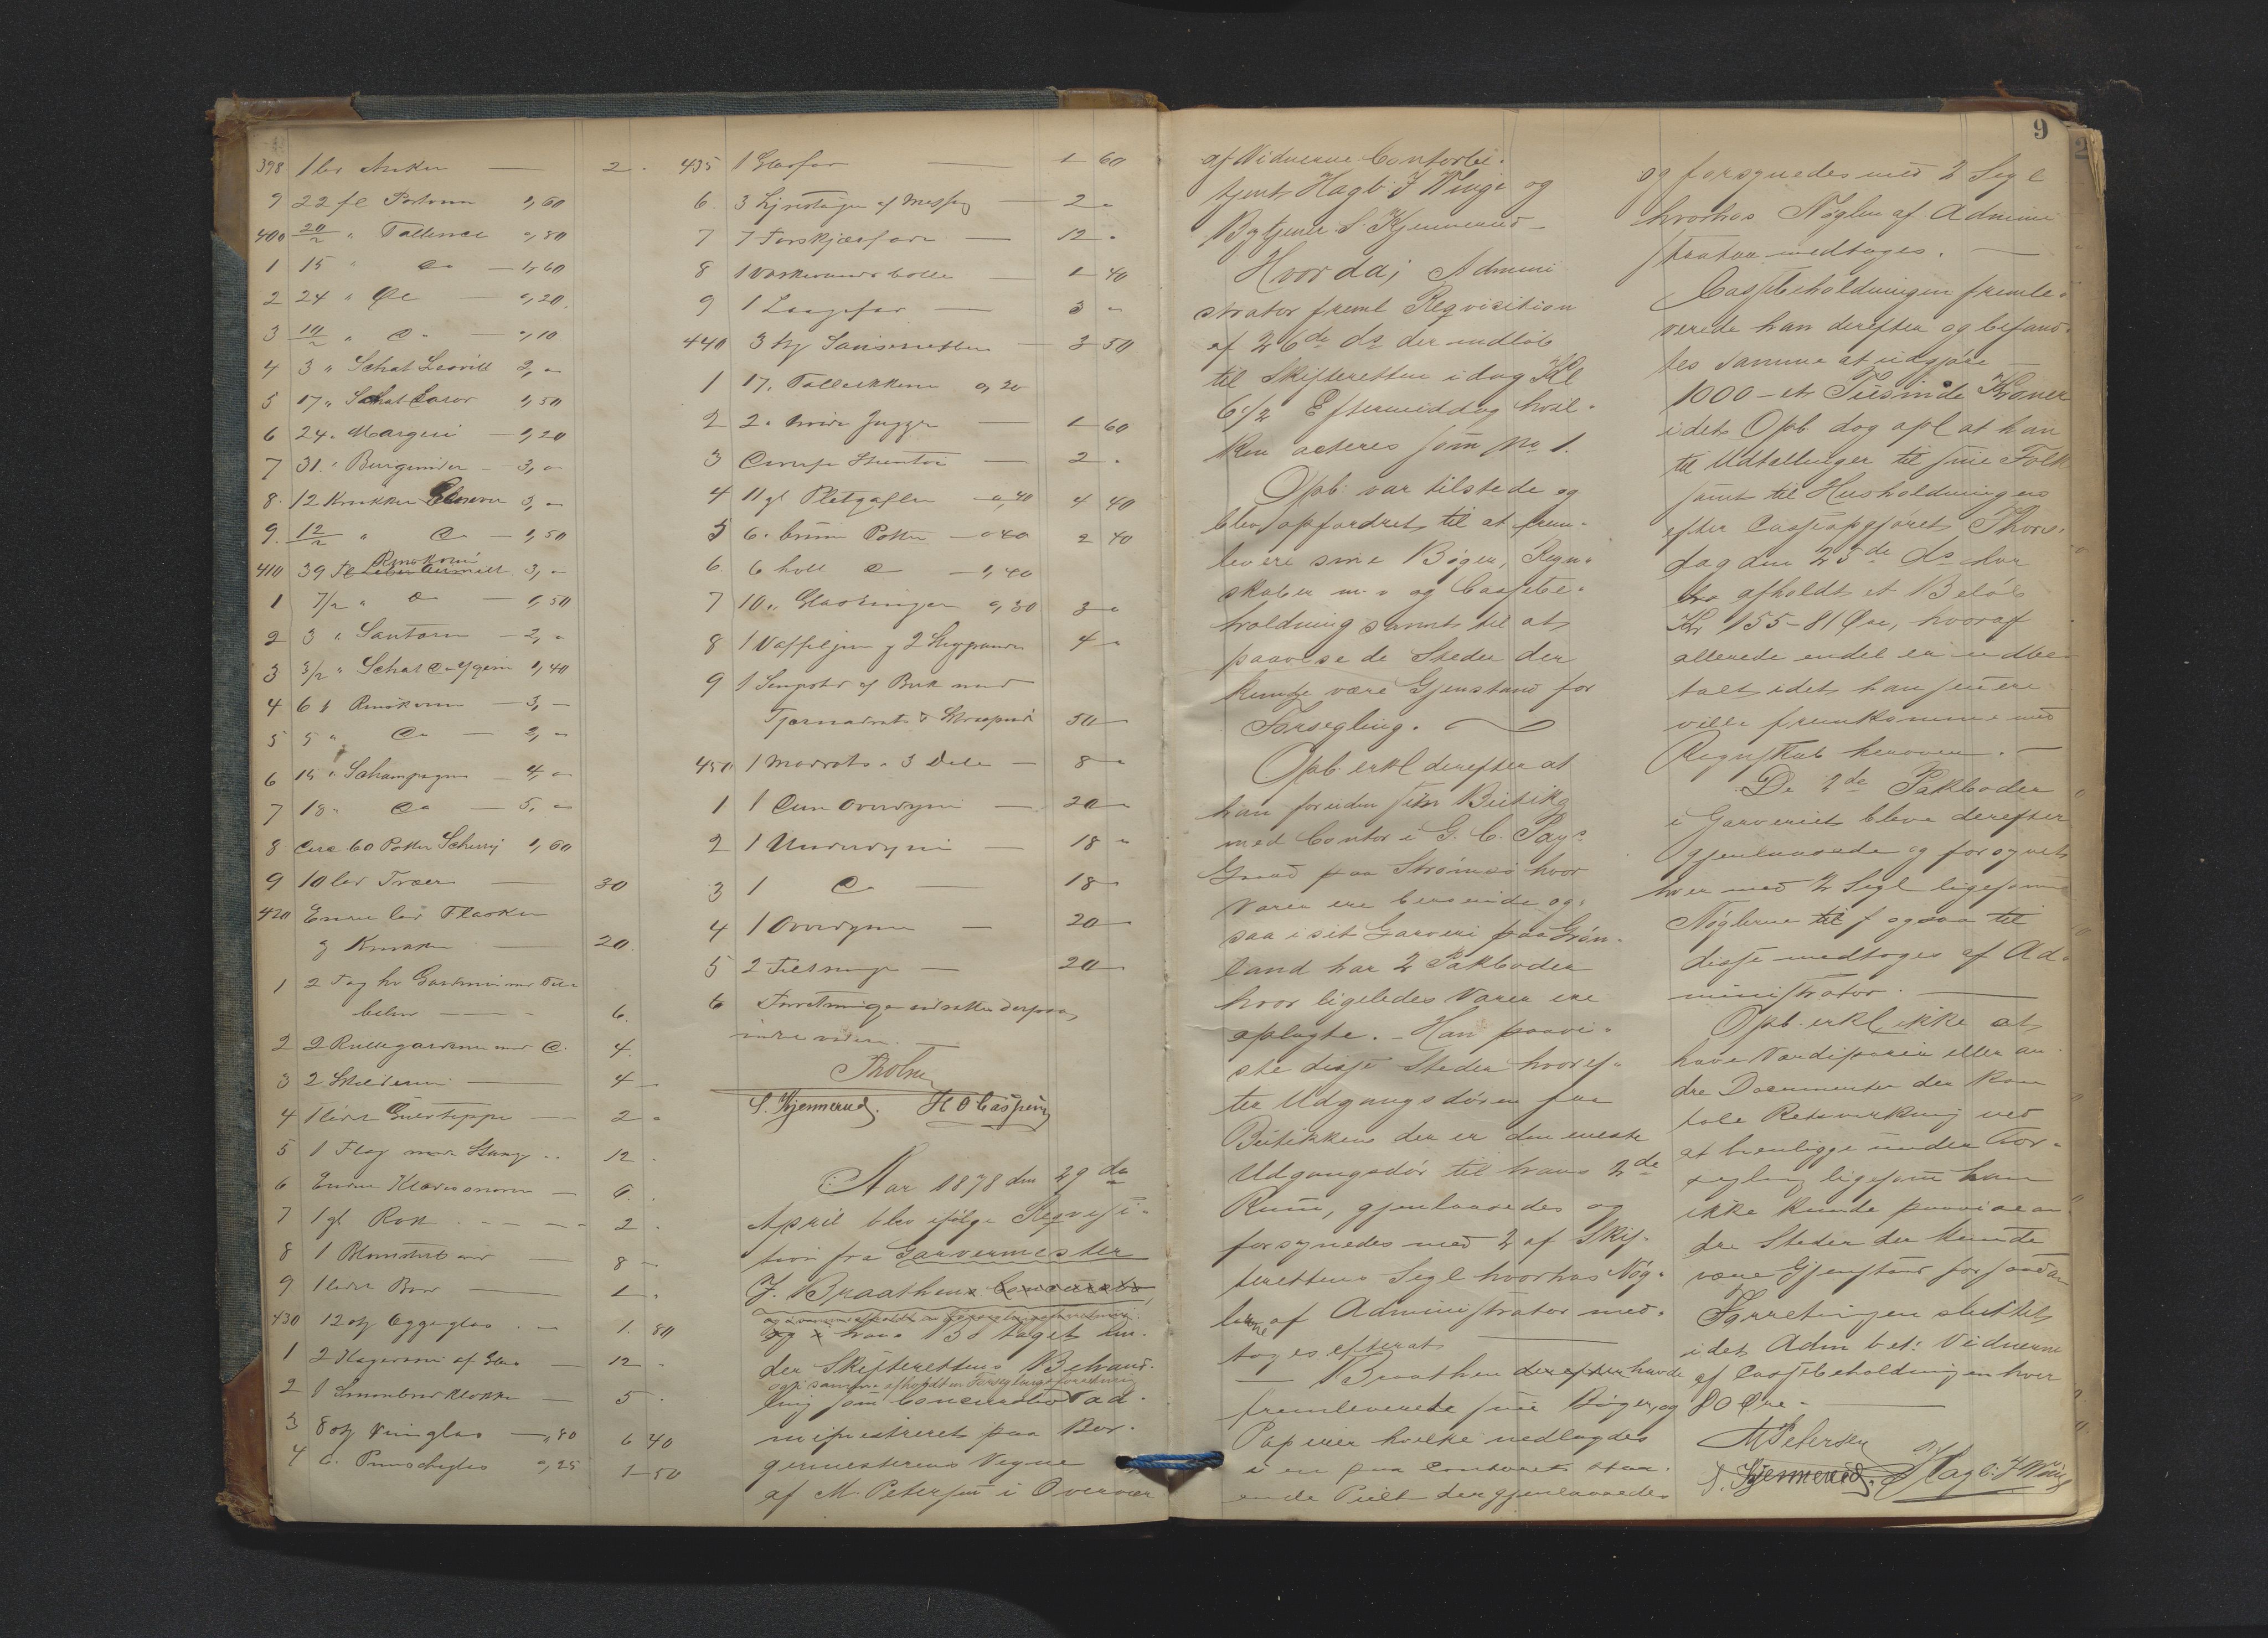 398 1 lov Anker — 2.
9 22 fl Portvin 1,60
400 20/2 " Tallinac 0,80
1 15 " Do — 1,60
2 24 " Øl — 0,20.
3 10/2 " Do — 0,10
4 3 " Schat Leovill 2,"
5 17 " Schat Larov 1,50
6 24 " Margeri — 1,20
7 31 " Burgunder — 3,"
8. 12 Krukker 3,"
9. 12/2 " Do — 1,50
410 39 fl Rinskvin 3,"
1 7/2 " Do — 1,50
2 3 " Santorin — 2,"
3 3/2 " Schat D'Yqem 1,40
4 6 fl Rinskvin — 3,—
5 5 " Do — 2,"
6 15 " Schampagne — 4,"
7 18 " Do — 5,"
8 Circa 60 Potter Scherry 1,60
9 10 lov Træer — 30
420 Endel lov Flasker
g Krukker — 20.
1 2 Fag hv Gardiner med Til-
behør — 6.
2 2 Rullegardiner med Do. 4.
3 2 Skilderier — 4 —
4 1 lidet Gulvteppe — 2 "
5 1 Flag med Stang .. 12 .
6 Endel Klædessnore — 6.
7 1 gl Rok — 2 .
8 1 Blomsterbord — 8 —
9 1 lidet Bord — 1 .
430 12 stk Eggeglas . — 1. 80
1 2 Kageromi af Glas — 12 -
2 1 Smørbrødklokke — 5 .
3 8 stk Vinglas — ",80 6 40
4 6. Punscheglas 0,25 1–50
435 1 Glasfad — 1 60
6. 3 Lysestager af Messing — 2 "
7 7 Forskjærfade — 12 .
8 1 Vaskevandsbolle — 1 40
9 1 Laagefad — 3 "
440 3 stk Saucenetter — 3 50
1 17. Tallerkkener 0,20
2 2. hvide Jugger — 1 60
3 Circa Stentøi — 2 .
4 11 gl Pletgafler — 0,40 4 40
5 6. brune Potter — 0 40 2 40
6. 6 hvll Do — 0,40
7 10 " Glasringer 0,30 3 "
8 1 Vaffeljern g 2 Stegpander 4 "
9 1 Sengested af Birk med
Fjærmadrats & Skraapude 50 —
450 1 Madrats à 3 Dele — 8 "
1 1 Dun Overdyne — 20 —
2 1 Underdyne — 18 "
3 1 Do — 18 —
4 1 Overdyne — 20 —
5 2 Feltsenge — 20 —
6 Forretningen udsattes derpaa
indtil videre.
Tholne
S. Kjennerud. H O Caspersen
Aar 1878 den 29de
April blev ifølge Reqvisi-
tion fra Garvermester
J. Braathens Concursbo,
og i hans Bo taget un-
der Skifterettens Behand-
og i samme afholdt en Forseglingsforretning
ling som Concursbo ad-
ministreret paa Bor-
germesterens Vegne
af M. Petersen i Overvær
9
af Vidnerne Contorbe-
tjent Hagb. J Winge og
Bytjener S Kjennerud —
Hvorda; Admini
strator freml Reqvisition
af 26de ds der indløb
til Skifteretten i dag Kl
6 1/2 Eftermiddag hvil-
ken acteres som No 1.
Opb: var tilstede og
blev opfordret til at frem-
levere sine Bøger, Regn-
skaber m. v og Cassebe-
holdning samt til at
paavise de Steder der
kunde være Gjenstand for
Forsegling.
Opb. erkl derefter at
han foruden sin Butikg
med Contor i G. C. Pays
Gaard paa Strømsø hvor
Varer ere beroende og-
saa i sit Garveri paa Grøn-
land har 2 Pakboder
hvor ligeledes Varer ere
oplagte. — Han paavi-
ste disse Steder hvoref-
ter Udgangsdøren fra
Butikken der er den eneste
Udgangsdør til hans 2de
Rum, gjenlaasedes og
forsynedes med 2 af Skif-
terettens Segl hvorhos Nøg-
lerne af Administrator med-
toges efterat
— Braathen derefter havde
fremleverede sine Bøger, og
Papirer hvilke nedlagdes
i en paa Contoret staa-
ende Pult der gjenlaasedes
og forsynedes med 2 Segl
hvorhos Nøglen af Admini
strator medtoges. —
Cassebeholdningen fremle-
verede han derefter og befand-
tes samme at udgjøre
1000 — et Tusinde Kroner
idet Opb dog opl at han
til Udtællinger til sine Folk
samt til Husholdningen
efter Casseopgjøret Thors-
dag den 25de ds har
bro afholdt et Beløb
Kr 155–81 Øre, hvoraf
allerede endel er udbe-
talt idet han senere
ville fremkomme med
Regnskab herover. —
De 2de Pakboder
i Garveriet bleve derefter
gjenlaasede og forsynet
hver med 2 Segl ligesom
Nøglerne til f ogsaa til
disse medtoges af Ad-
ministrator. —
Opb. erkl ikke at
have Værdipapirer eller an-
dre Documenter der kan
tale Retsvirkning ved
at henligge under For-
segling ligesom han
ikke kunde paavise an-
dre Steder der kunde
være Gjenstand for saadan
Forretningen sluttet
idet Adm bet: Vidnerne
af Cassebeholdningen hver
80 Øre. —
M Petersen
S. Kjennerud. Hagb. J Winge